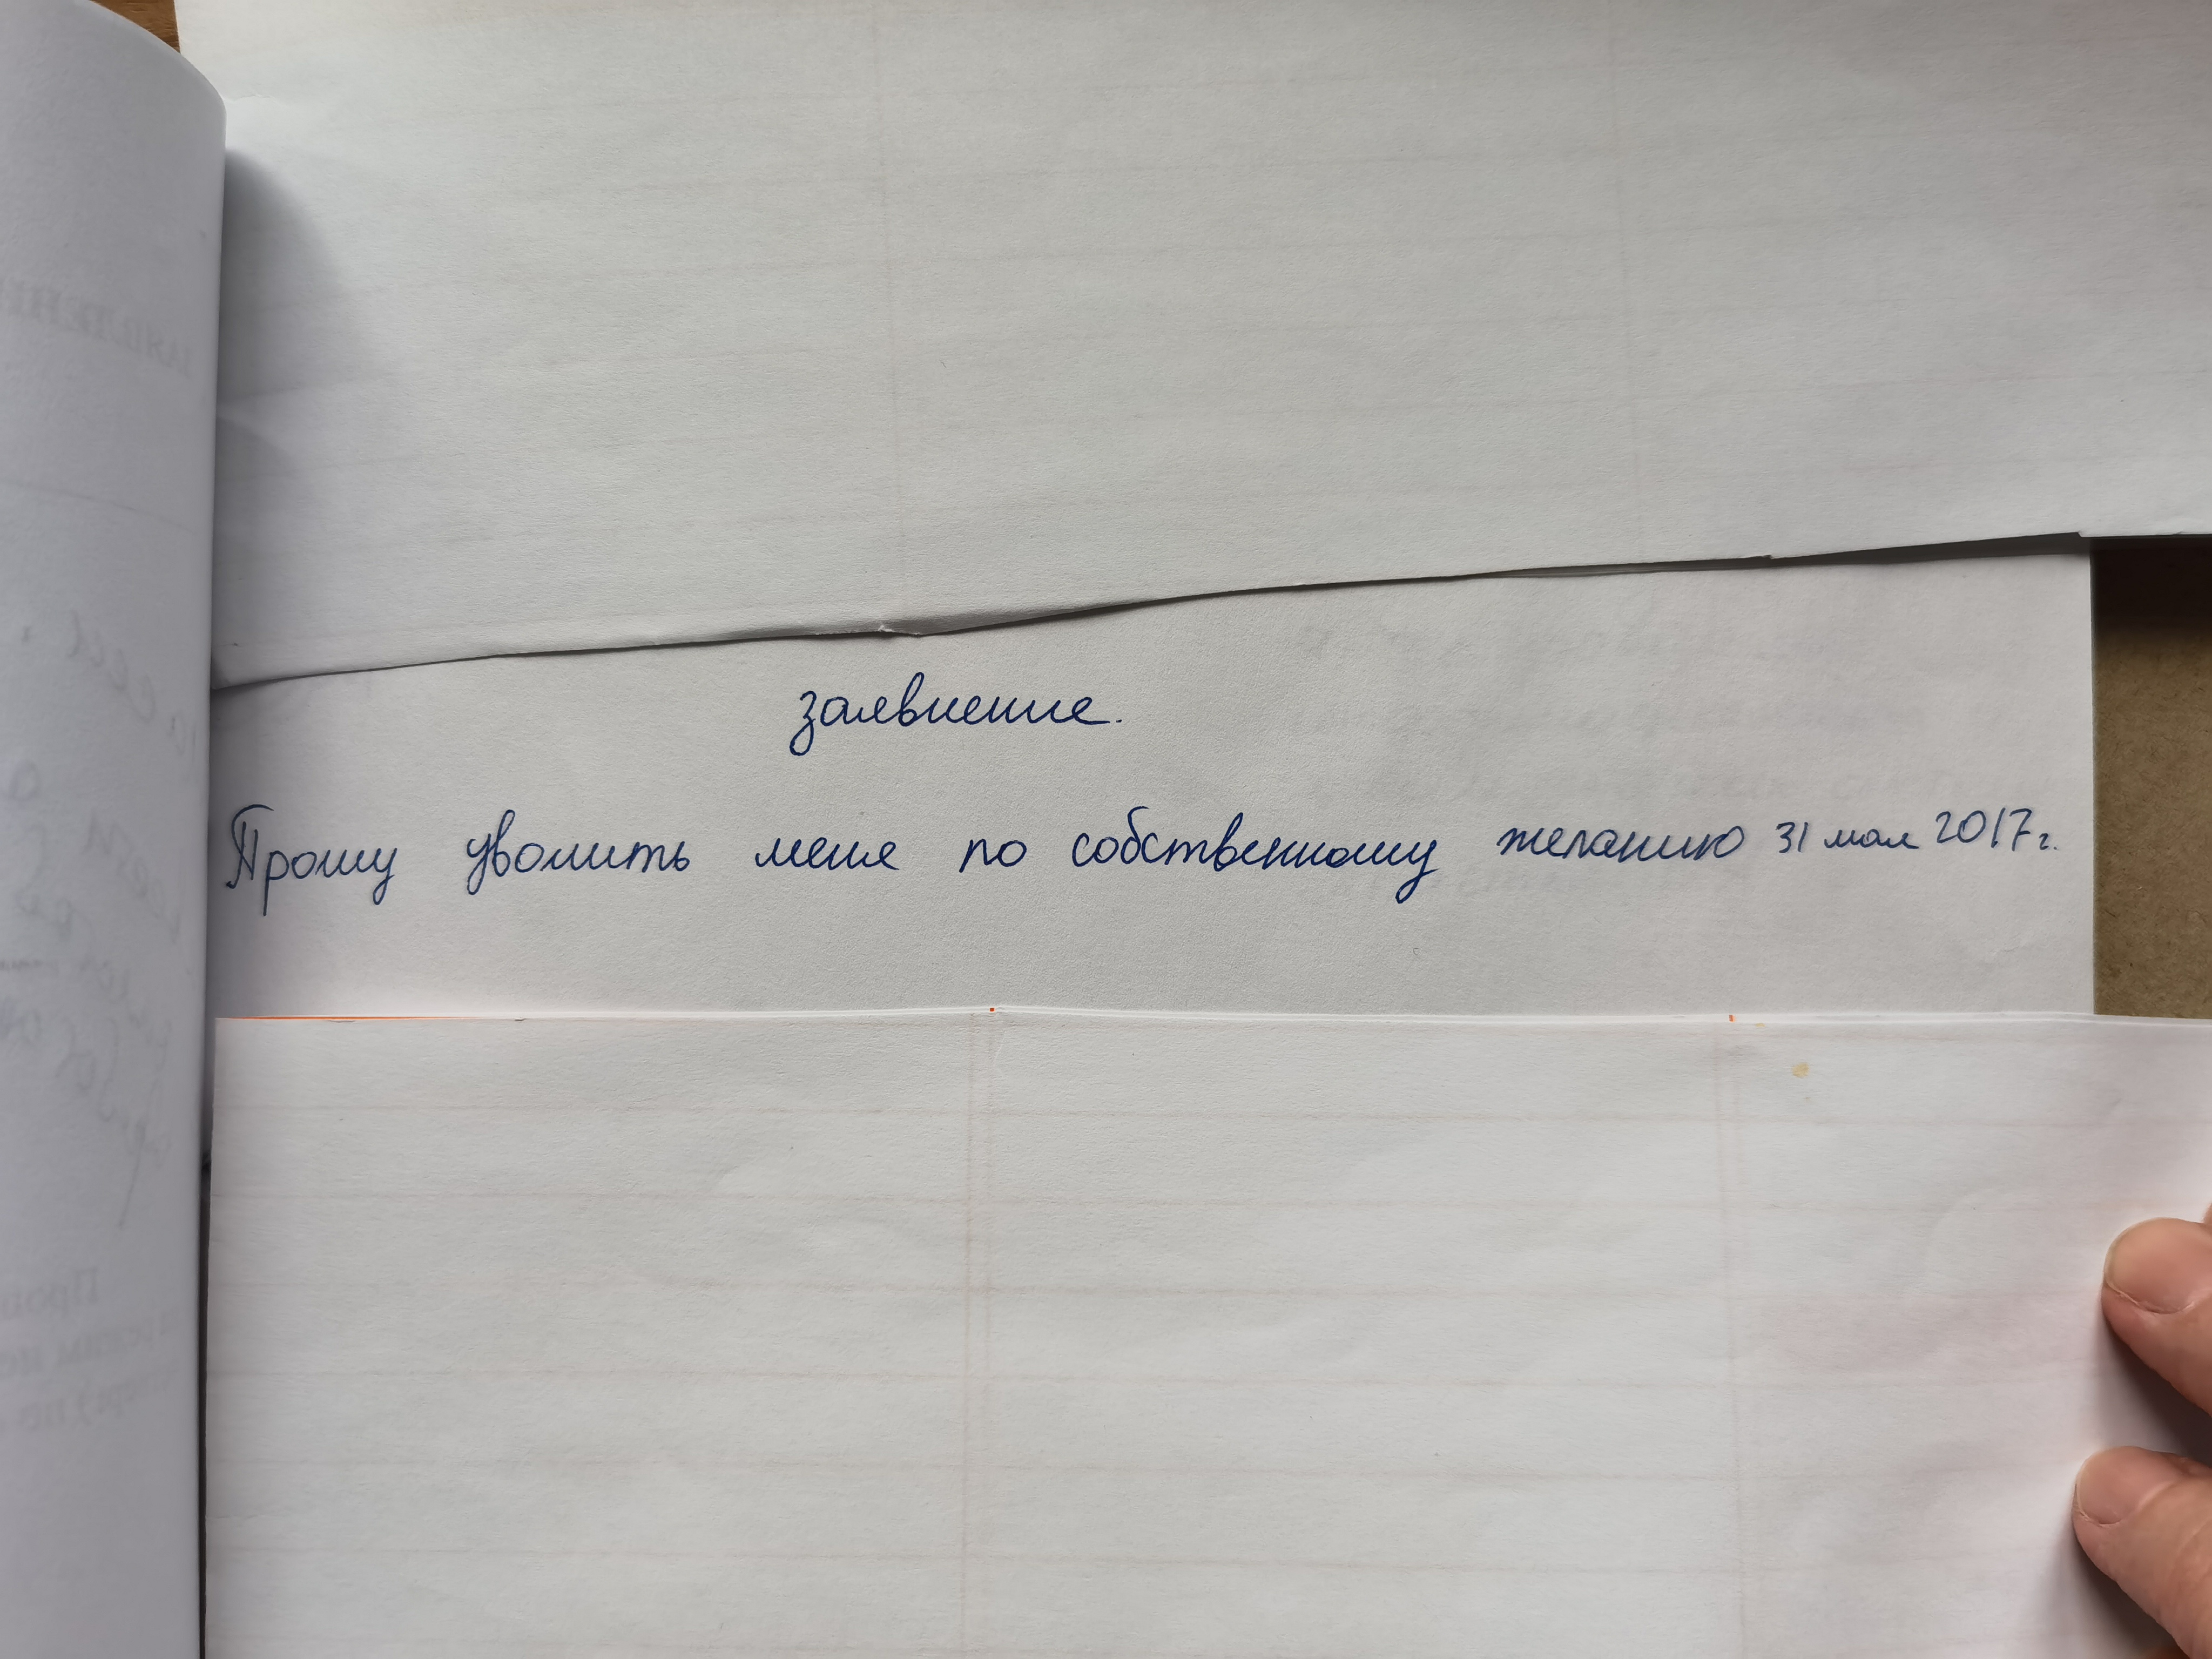 заявление.
Прошу уволить меня по собственному желанию 31 мая 2017г.